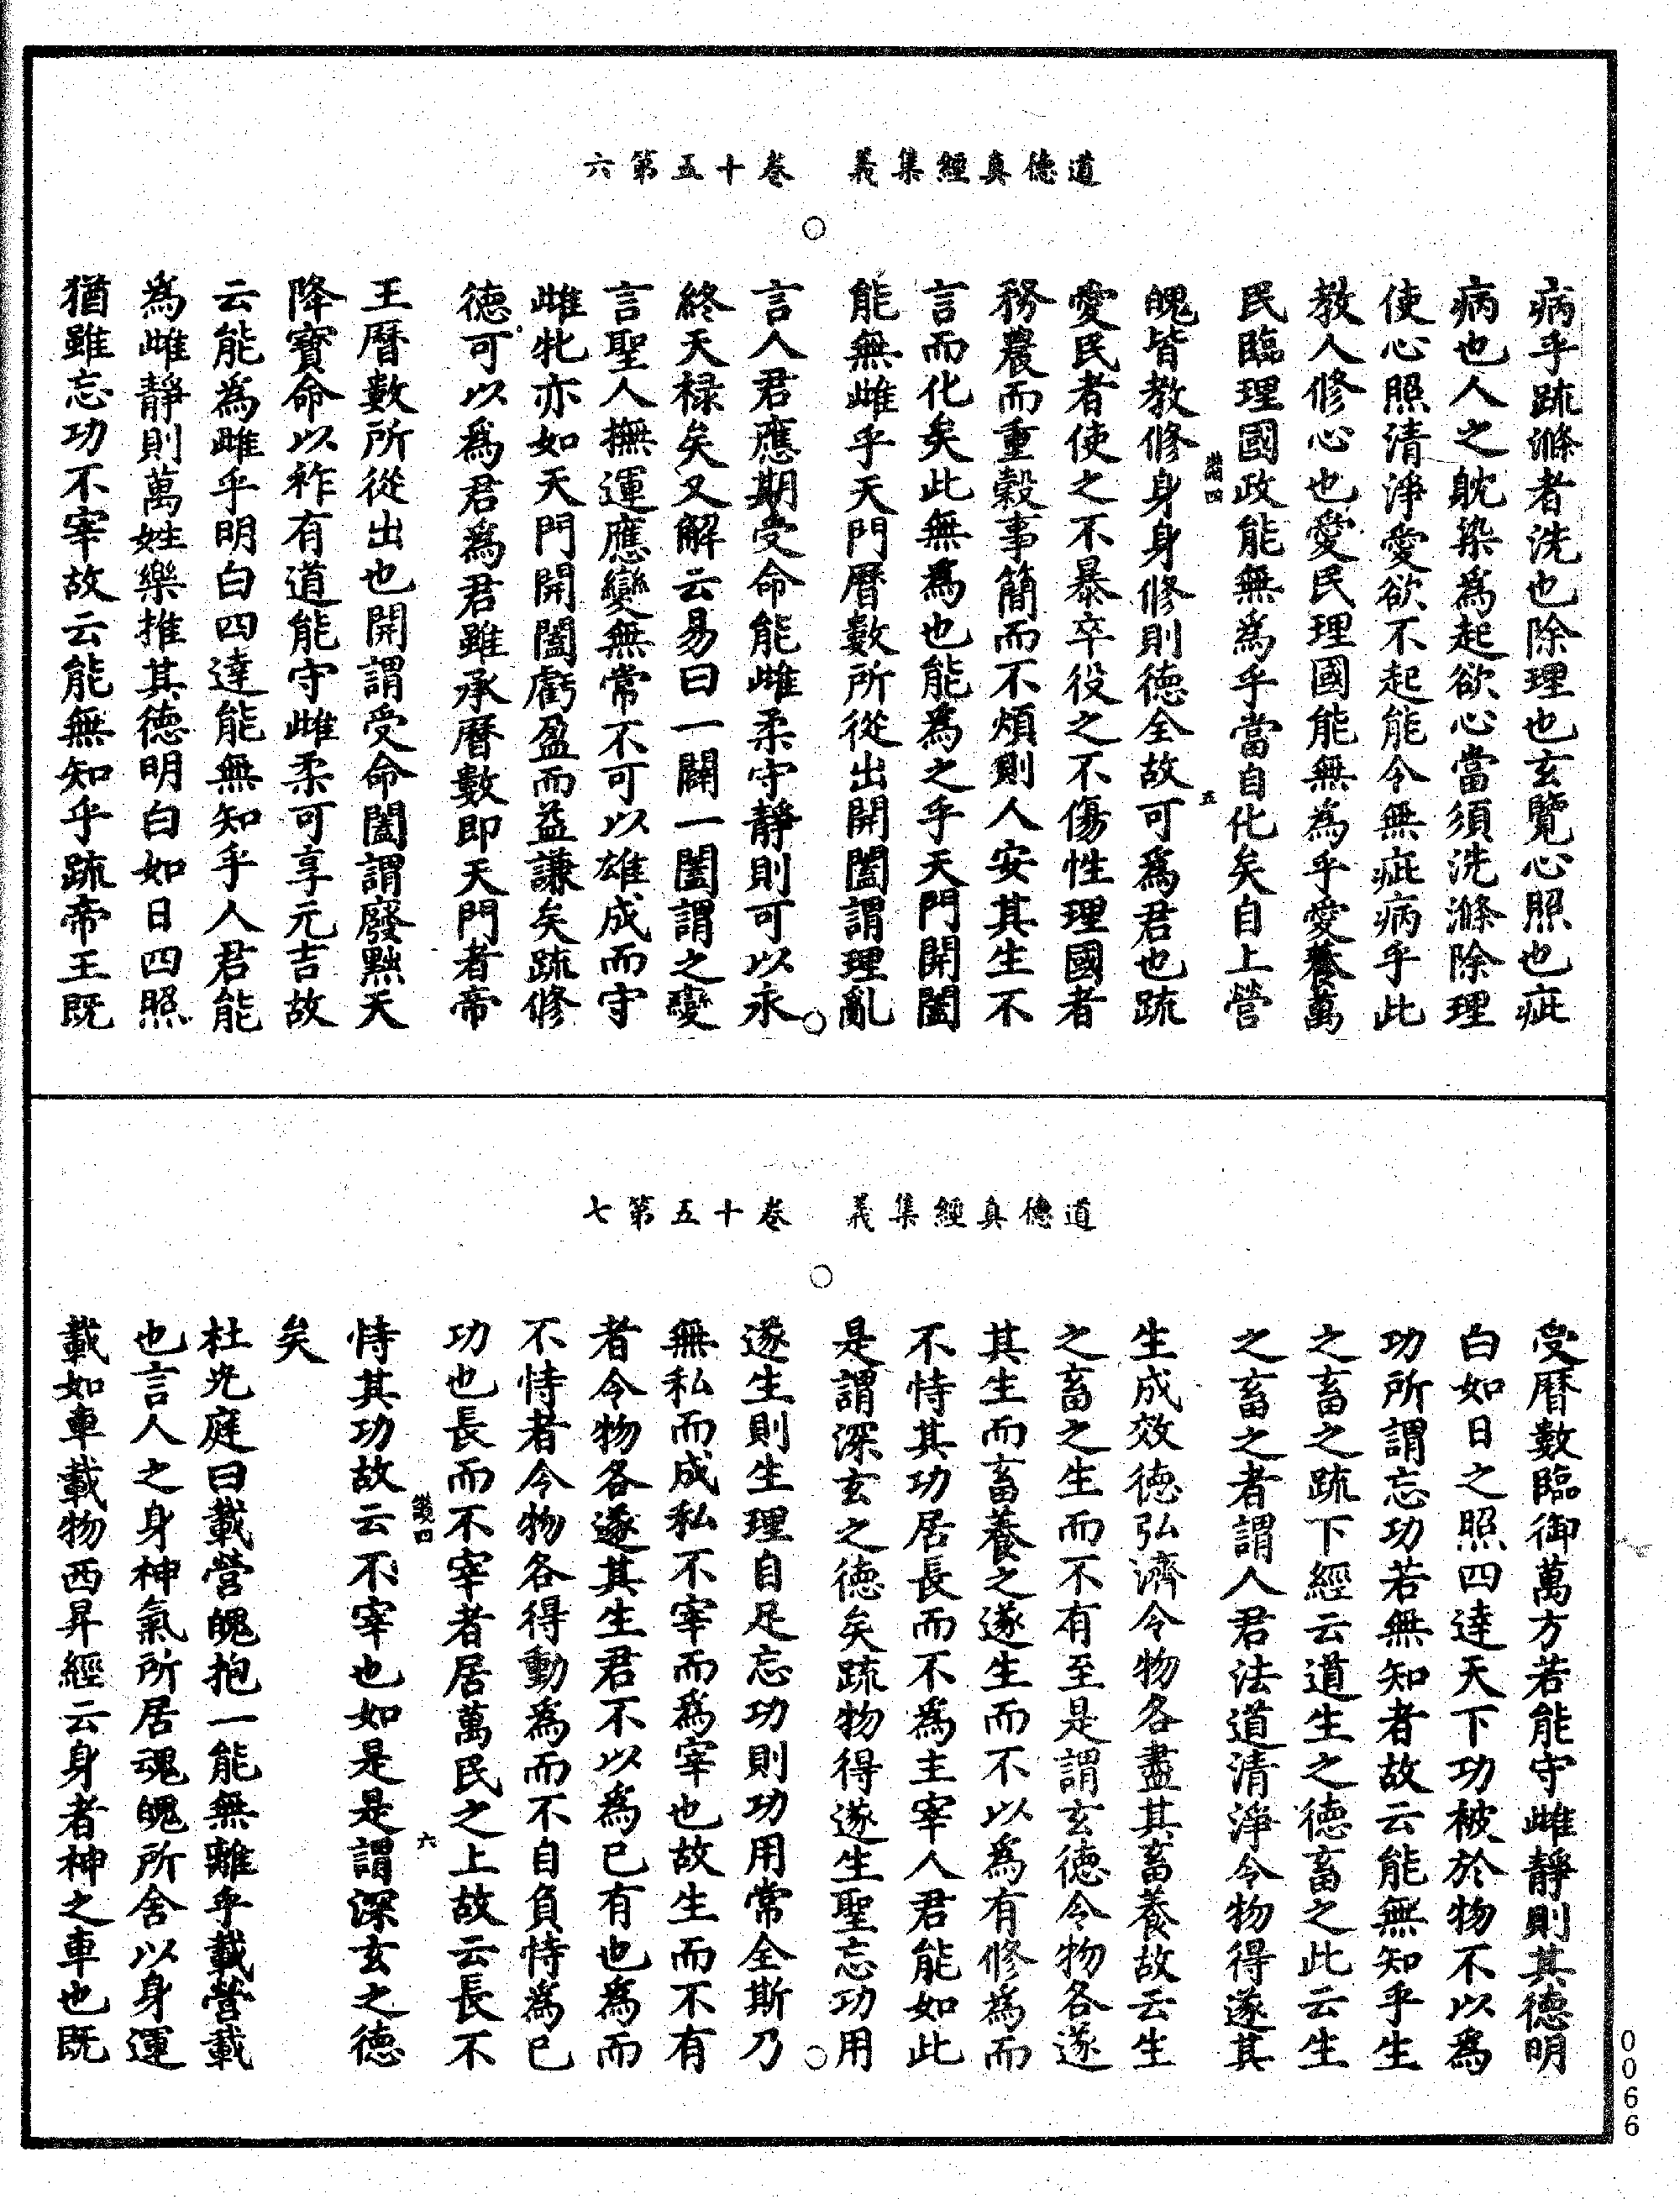 道德真經集義　卷十五第六
病乎疏滌者洗也除理也玄覽心照也疵
病也人之躭染為起欲心當須洗滌除理
使心照清淨愛欲不起能令無疵病乎此
教人修心也愛民理國能無為乎愛養萬
民臨理國政能無為乎當自化矣自上營
魄皆教修身身修則德全故可為君也疏
愛民者使之不暴卒役之不傷性理國者
務農而重穀事簡而不煩則人安其生不
言而化矣此無為也能為之乎天門開闔
能無雌乎天門曆數所從出開闔謂理亂
言人君應期受命能雌柔守靜則可以永
終天祿矣又解云易曰一闢一闔謂之變
言聖人撫運應變無常不可以雄成而守
雌牝亦如天門開闔虧盈而益謙矣疏修
德可以為君為君雖承曆數即天門者帝
王曆數所從出也開謂受命闔謂廢黜天
降寶命以祚有道能守雌柔可享元吉故
云能為雌乎明白四達能無知乎人君能
為雌靜則萬姓樂推其德明白如日四照
猶雖忘功不宰故云能無知乎疏帝王既
四
五
道德真經集義　卷十五第七
受曆數臨御萬方若能守雌靜則其德明
白如日之照四達天下功被於物不以為
功所謂忘功若無知者故云能無知乎生
之畜之疏下經云道生之德畜之此云生
之畜之者謂人君法道清淨令物得遂其
生成效德弘濟令物各盡其畜養故云生
之畜之生而不有至是謂玄德令物各遂
其生而畜養之遂生而不以為有修為而
不恃其功居長而不為主宰人君能如此
是謂深玄之德矣疏物得遂生聖忘功用
遂生則生理自足忘功則功用常全斯乃
無私而成私不宰而為宰也故生而不有
者令物各遂其生君不以為已有也為而
不恃者令物各得動為而不自負恃為已
功也長而不宰者居萬民之上故云長不
恃其功故云不宰也如是是謂深玄之德
矣
杜光庭曰載營魄抱一能無離乎載營載
也言人之身神氣所居魂魄所舍以身運
載如車載物西昇經云身者神之車也既
四
六
0066